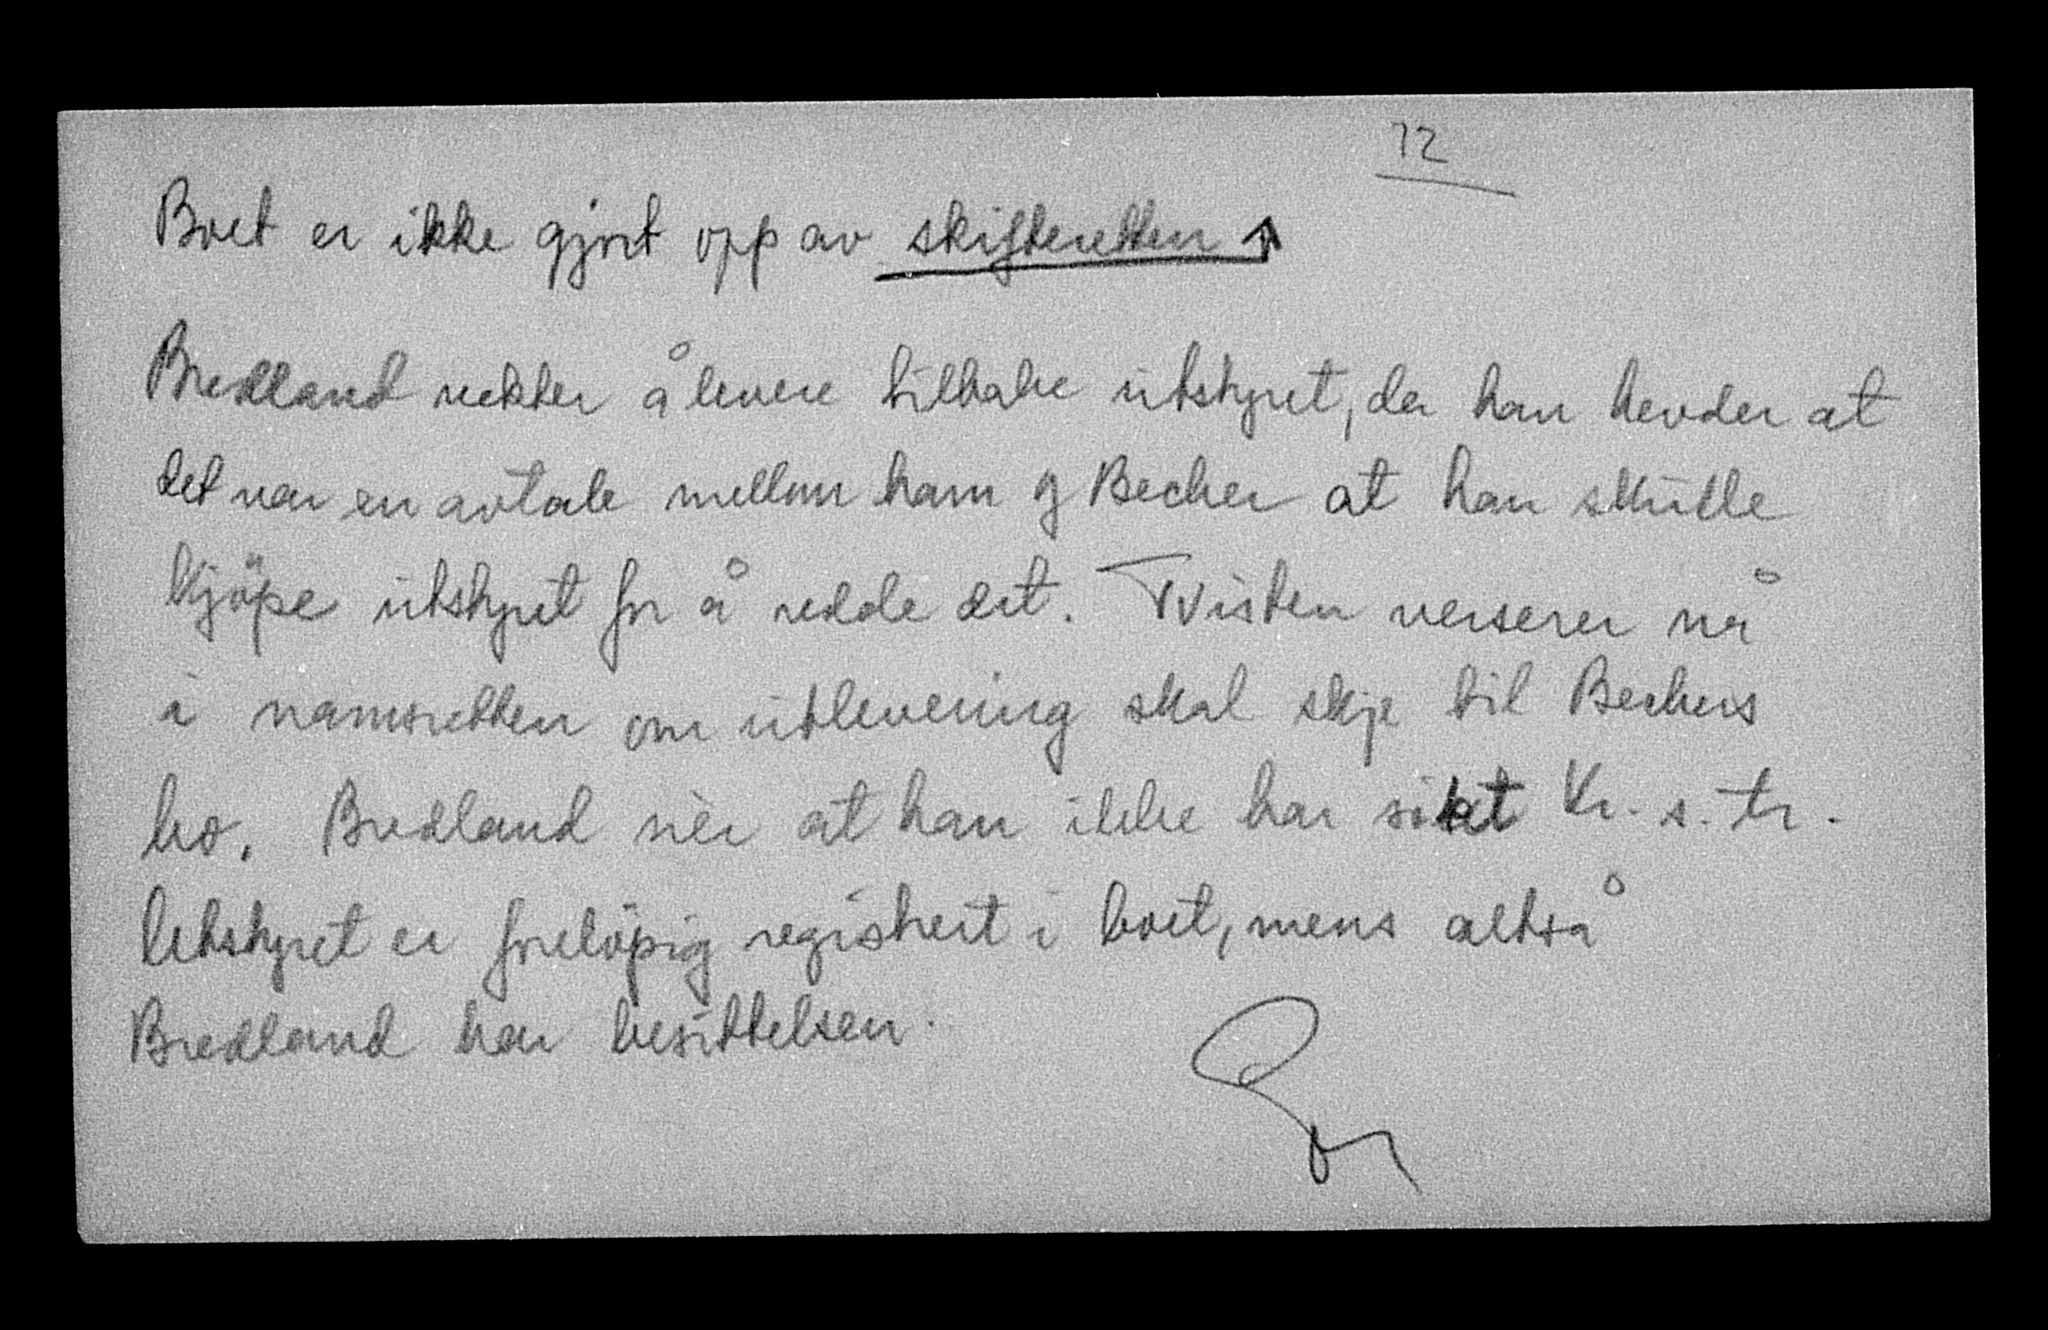 12
Boet er ikke gjort opp av skifteretten
Bredland nekter å levere tilbake utstyret, da han hevder at
det var en avtale mellom ham og Becker at han skulle
kjöpe utstyret for å redde det. Tvisten verserer nå
i namsretten om utlevering skal skje til Beckers
bo. Bredland sier at han ikke har sökt Kr. s. tr.
Utstyret er forelöpig registrert i boet, mens altså
Bredland har besittelsen.